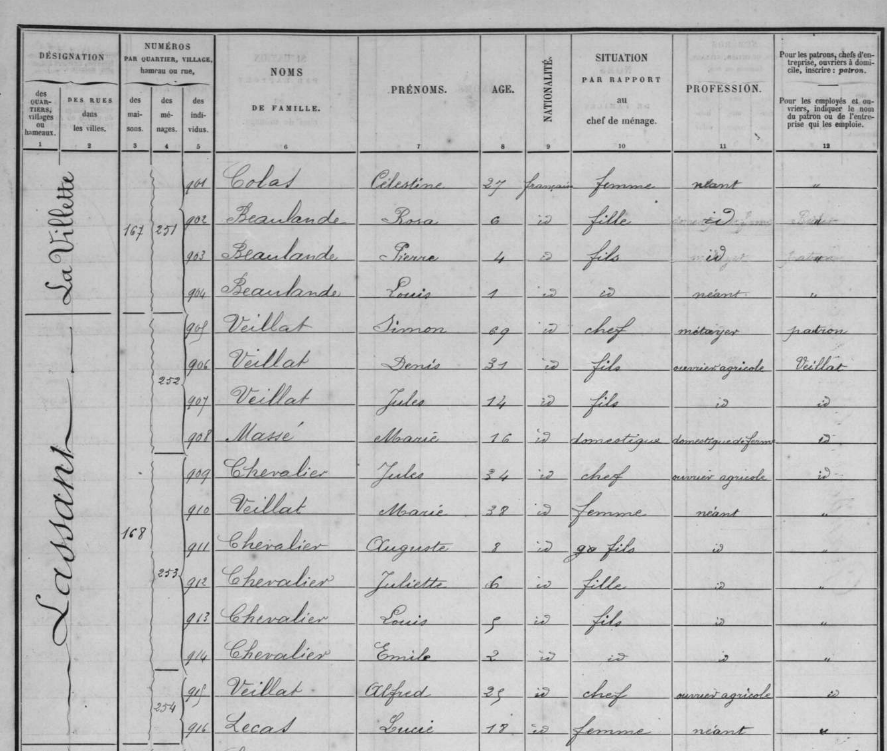 DÉSIGNATION
NUMÉROS
PAR QUARTIER, VILLAGE,
hameau ou rue,
NOMS
DE FAMILLE.
PRÉNOMS.
AGE.
NATIONALITÉ.
SITUATION
PAR RAPPORT
au
chef de ménage.
PROFESSION.
Pour les patrons, chefs d'en-
treprise, ouvriers à domi-
cile, inscrire : patron.
Pour les employés et ou-
vriers, indiquer le nom
du patron ou de l'entre-
prise qui les emploie.
des
QUAR-
TIERS,
villages
ou
hameaux.
DES RUES
dans
les villes.
des
mai-
sons.
des
mé-
nages.
des
indi-
vidus.
1 2 3 4 5 6 7 8 9 10 11 12
La Villette
167 251
901 Colas Célestine 27 français femme néant "
902 Beaulande Rosa 6 id fille id "
903 Beaulande Pierre 4 id fils id "
904 Beaulande Louis 1 id id néant "
Lassant
168
252
905 Veillat Simon 69 id chef métayer patron
906 Veillat Denis 31 id fils ouvrier agricole Veillat
907 Veillat Jules 14 id fils id id
908 Massé Marie 16 id domestique domestique de ferme id
253
909 Chevalier Jules 34 id chef ouvrier agricole id
910 Veillat Marie 38 id femme néant "
911 Chevalier Auguste 8 id fils id "
912 Chevalier Juliette 6 id fille id "
913 Chevalier Louis 5 id fils id "
914 Chevalier Emile 2 id id id "
254
915 Veillat Alfred 25 id chef ouvrier agricole id
916 Lecas Lucie 18 id femme néant "